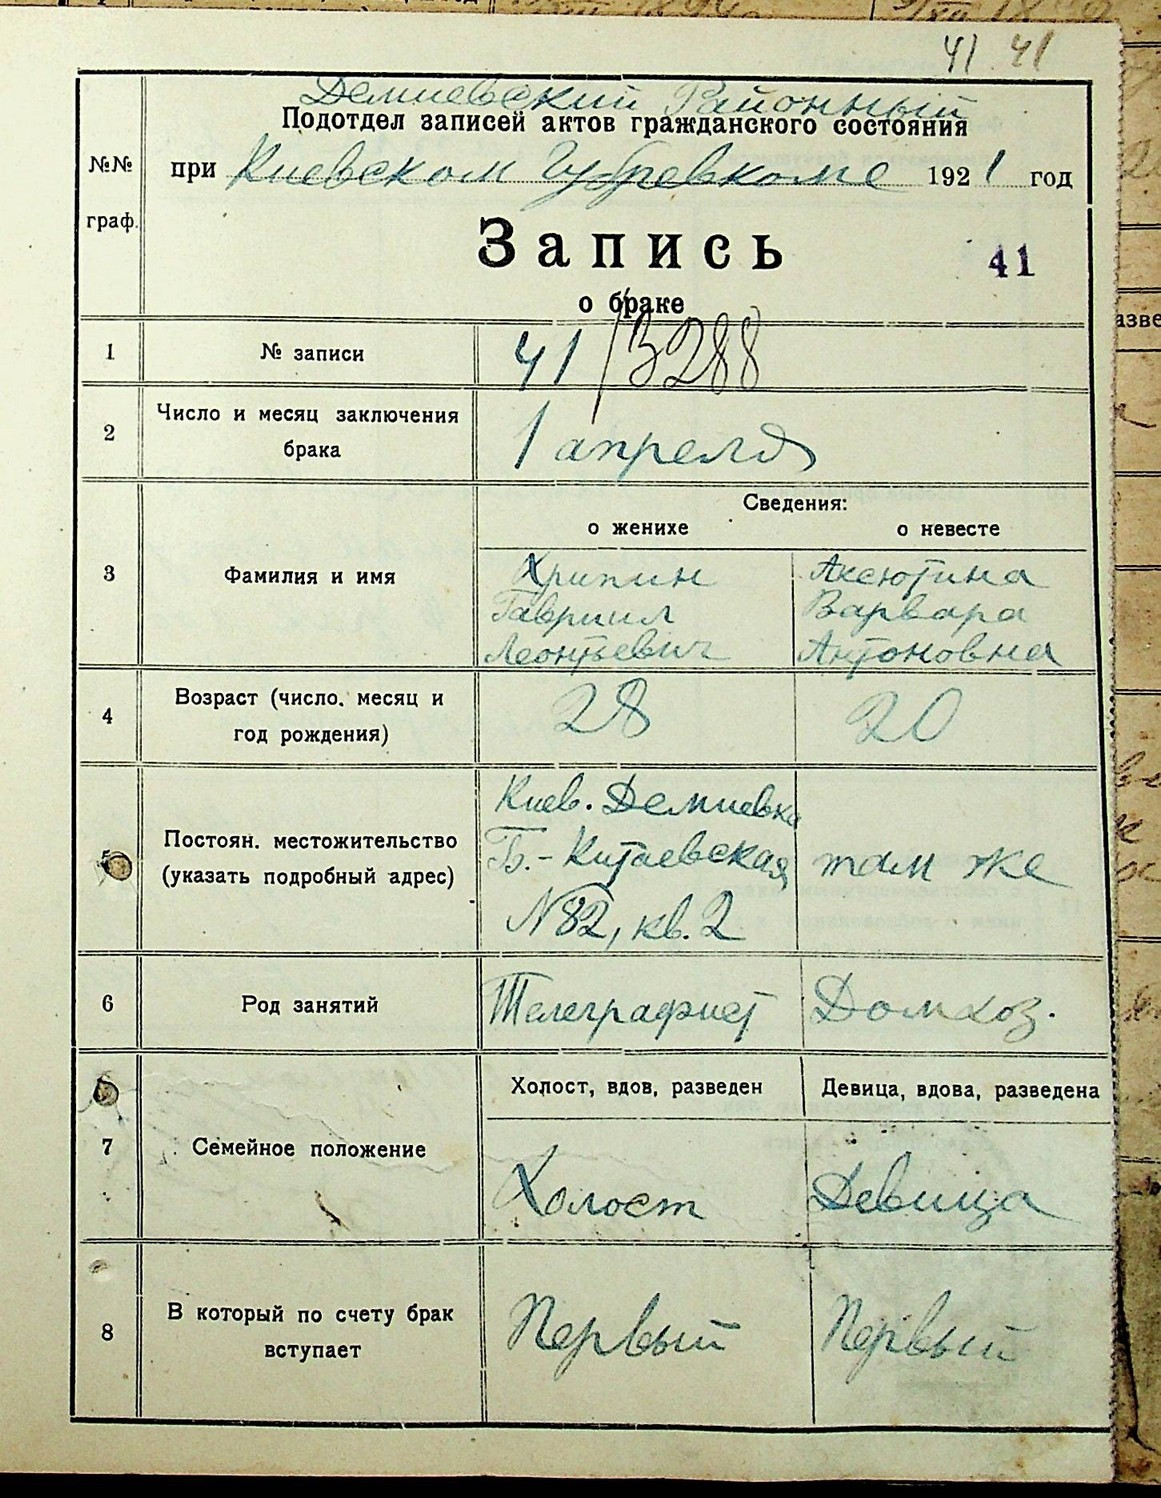 41 41
Демиевский Районный
Подотдел записей актов гражданского состояния
при Киевском Губревкоме 1921 год
№№
граф.
Запись
41
о браке
1 № записи 41/3288
2 Число и месяц заключения
брака
1 апреля
Сведения:
о женихе о невесте
3 Фамилия и имя
Хрипин Аксютина
Гавриил Варвара
Леонтьевич Антоновна
4 Возраст (число, месяц и
год рождения)
28 20
5 Постоян. местожительство
(указать подробный адрес)
Киев. Демиевка
Б.-Китаевская там же
№82, кв. 2
6 Род занятий Телеграфист Домхоз.
Холост, вдов, разведен Девица, вдова, разведена
7 Семейное положение
Холост Девица
8 В который по счету брак
вступает
Первый Первый